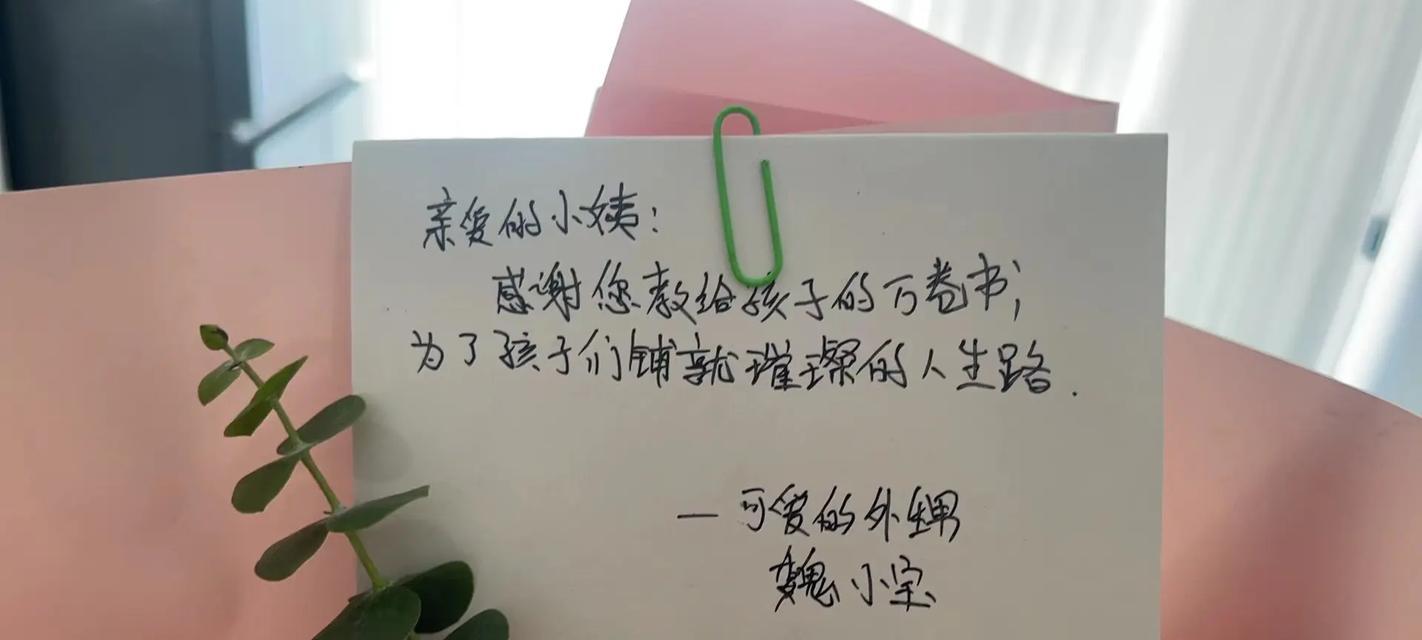 亲爱的小姨：
感谢您教给孩子的万卷书；
为了孩子们铺就璀璨的人生路.
—可爱的外甥
魏小宝